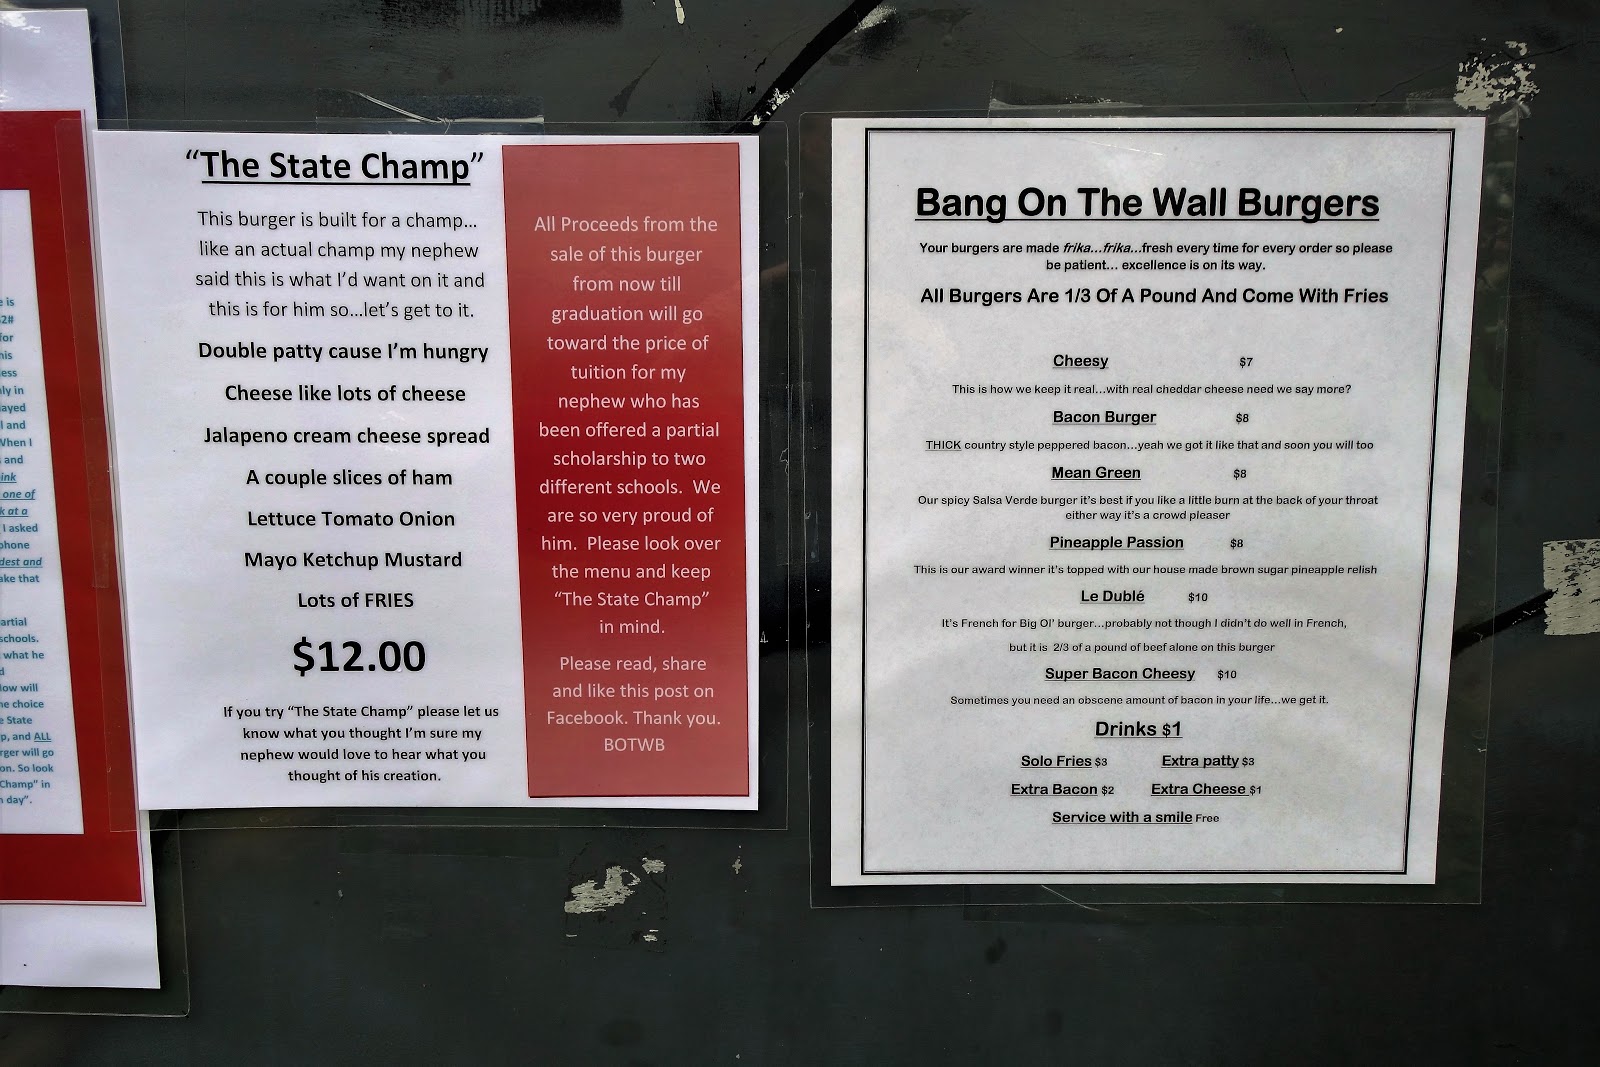 e is
2#
for
his
ess
ly in
ayed
l and
When I
s and
ink
one of
k at a
I asked
phone
dest and
ake that
artial
schools.
what he
d
low will
he choice
e State
p, and ALL
rger will go
on. So look
Champ" in
n day".
“The State Champ”
This burger is built for a champ…
like an actual champ my nephew
said this is what I’d want on it and
this is for him so…let’s get to it.
Double patty cause I’m hungry
Cheese like lots of cheese
Jalapeno cream cheese spread
A couple slices of ham
Lettuce Tomato Onion
Mayo Ketchup Mustard
Lots of FRIES
$12.00
If you try “The State Champ” please let us
know what you thought I’m sure my
nephew would love to hear what you
thought of his creation.
All Proceeds from the
sale of this burger
from now till
graduation will go
toward the price of
tuition for my
nephew who has
been offered a partial
scholarship to two
different schools. We
are so very proud of
him. Please look over
the menu and keep
“The State Champ”
in mind.
Please read, share
and like this post on
Facebook. Thank you.
BOTWB
Bang On The Wall Burgers
Your burgers are made frika…frika…fresh every time for every order so please
be patient… excellence is on its way.
All Burgers Are 1/3 Of A Pound And Come With Fries
Cheesy $7
This is how we keep it real…with real cheddar cheese need we say more?
Bacon Burger $8
THICK country style peppered bacon…yeah we got it like that and soon you will too
Mean Green $8
Our spicy Salsa Verde burger it’s best if you like a little burn at the back of your throat
either way it’s a crowd pleaser
Pineapple Passion $8
This is our award winner it’s topped with our house made brown sugar pineapple relish
Le Dublé $10
It’s French for Big Ol’ burger…probably not though I didn’t do well in French,
but it is 2/3 of a pound of beef alone on this burger
Super Bacon Cheesy $10
Sometimes you need an obscene amount of bacon in your life…we get it.
Drinks $1
Solo Fries $3 Extra patty $3
Extra Bacon $2 Extra Cheese $1
Service with a smile Free